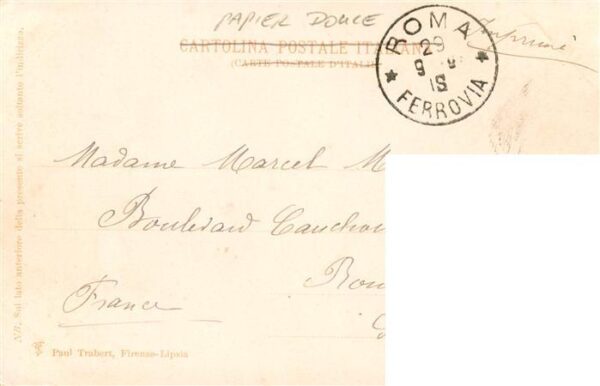 PAPIER DOUCE
CARTOLINA POSTALE ITALIANA
(CARTE POSTALE D'ITALIE
ROMA
29
9
IS
FERROVIA
Imprimé
Madame Marcel M
Boulevard Cauchoi
Rou
France
NB. Sul lato anteriore della presente si scrive soltanto l'indirizzo.
Paul Trabert, Firenze-Lipsia